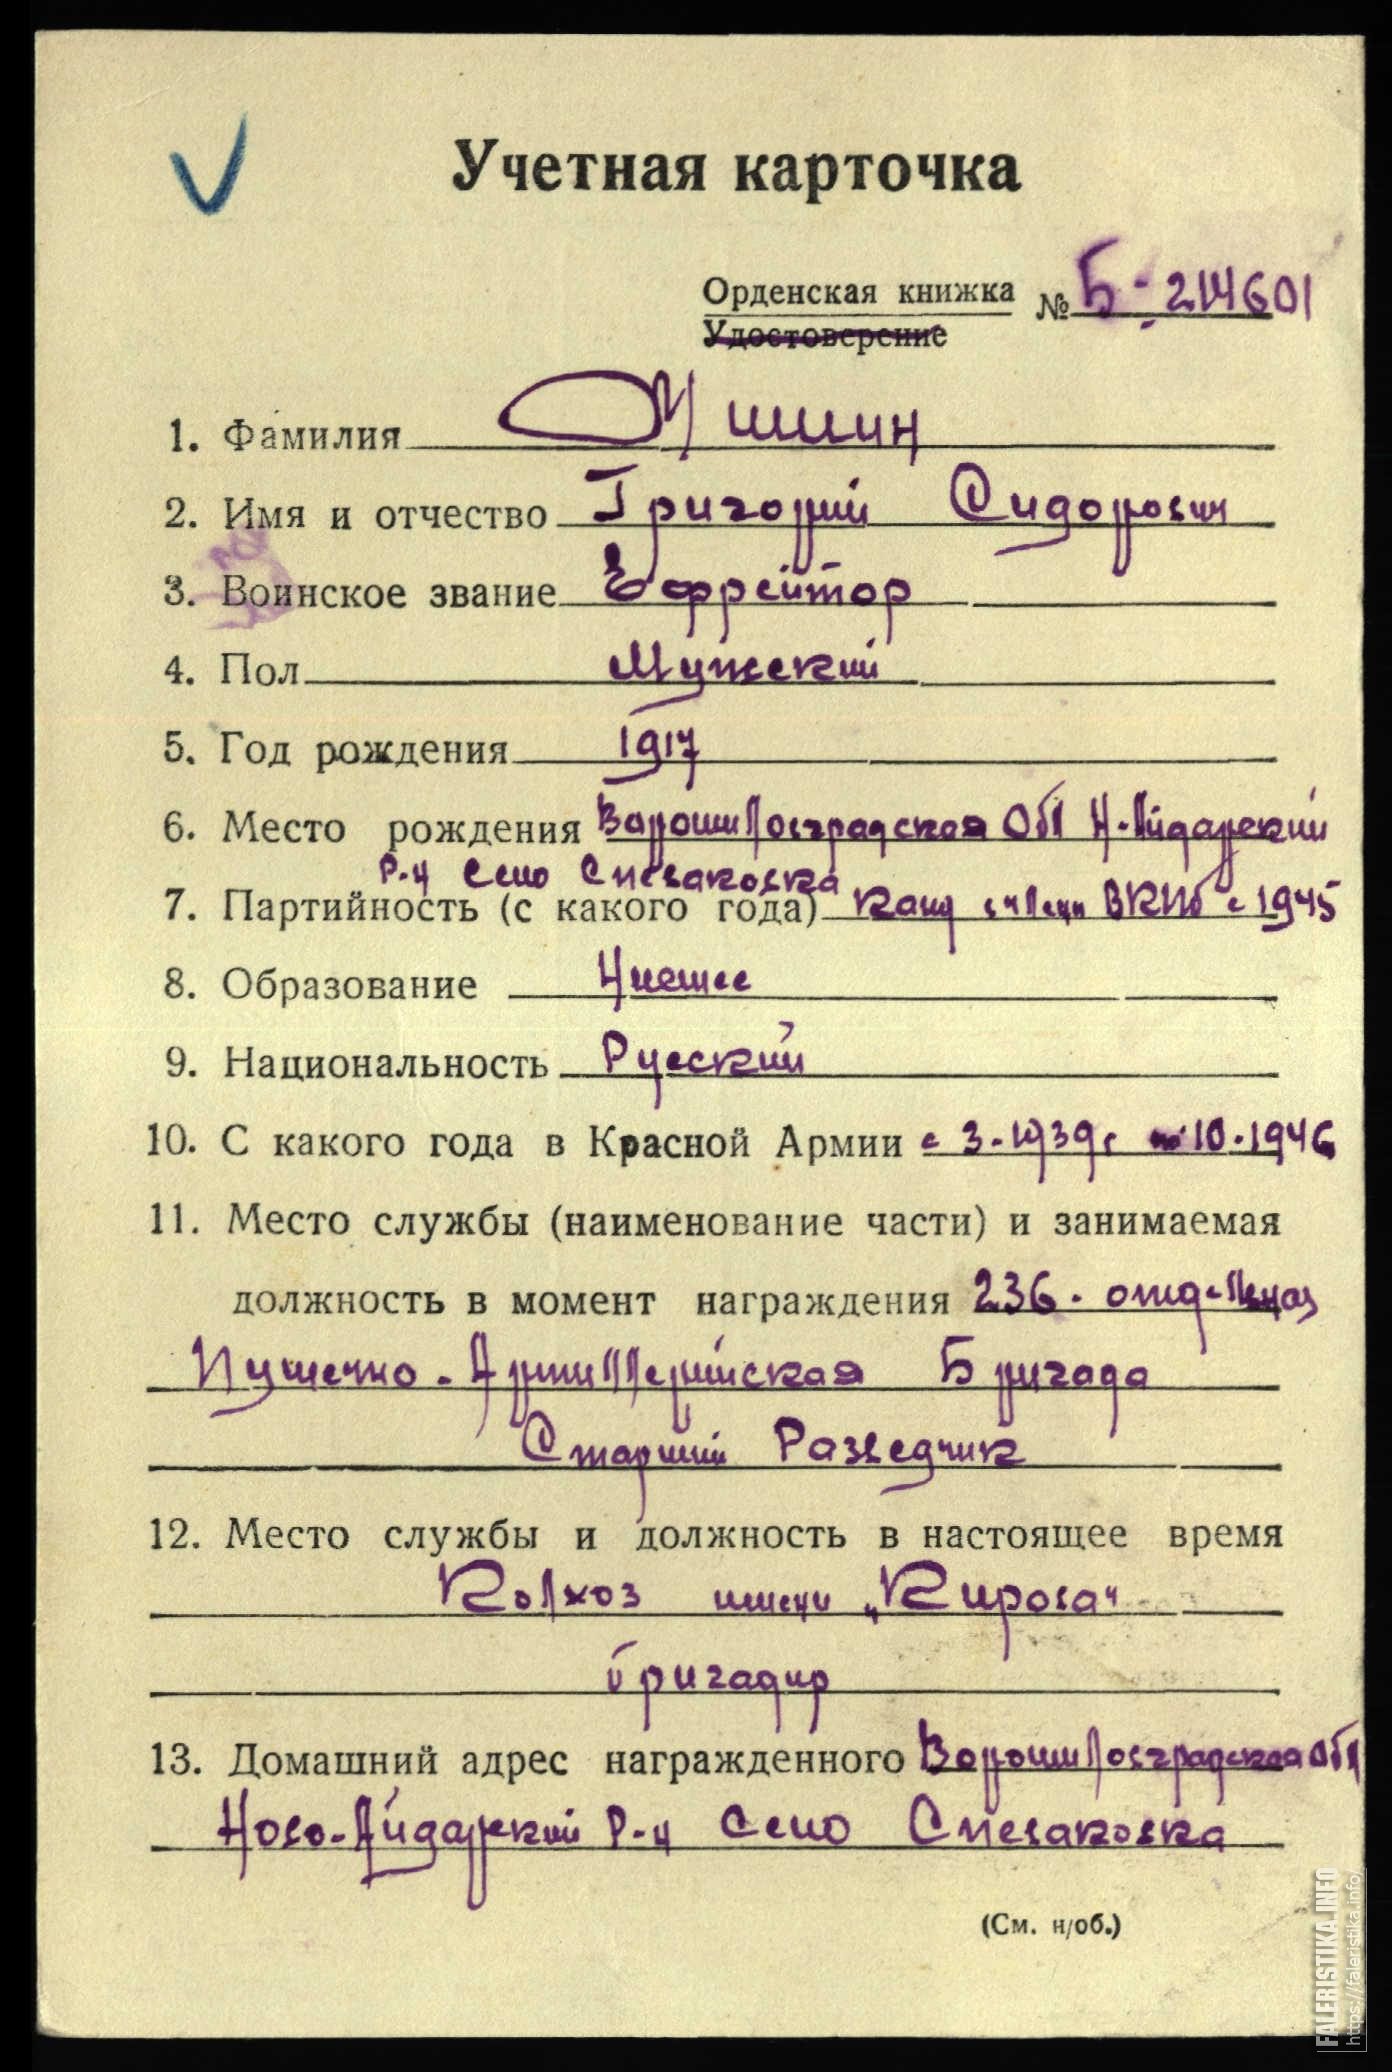 Учетная карточка
Орденская книжка № Б-214601
Удостоверение
1. Фамилия
2. Имя и отчество Григорий Сидорович
3. Воинское звание Ефрейтор
4. Пол Мужский
5. Год рождения 1917
6. Место рождения Ворошиловградская Обл Н-Айдарский
Р-н Село Спеваковка
7. Партийность (с какого года) Канд в члены ВКПб с 1945
8. Образование Низшее
9. Национальность Русский
10. С какого года в Красной Армии с 3-1939г по 10-1946
11. Место службы (наименование части) и занимаемая
должность в момент награждения 236.
Пушечно-Артиллерийская Бригада
Старший Разведчик
12. Место службы и должность в настоящее время
Колхоз имени „Кирова“
бригадир
13. Домашний адрес награжденного Ворошиловградская Обл
Ново-Айдарский Р-н Село Спеваковка
(См. н/об.)
FALERISTIKA.INFO
https://faleristika.info/